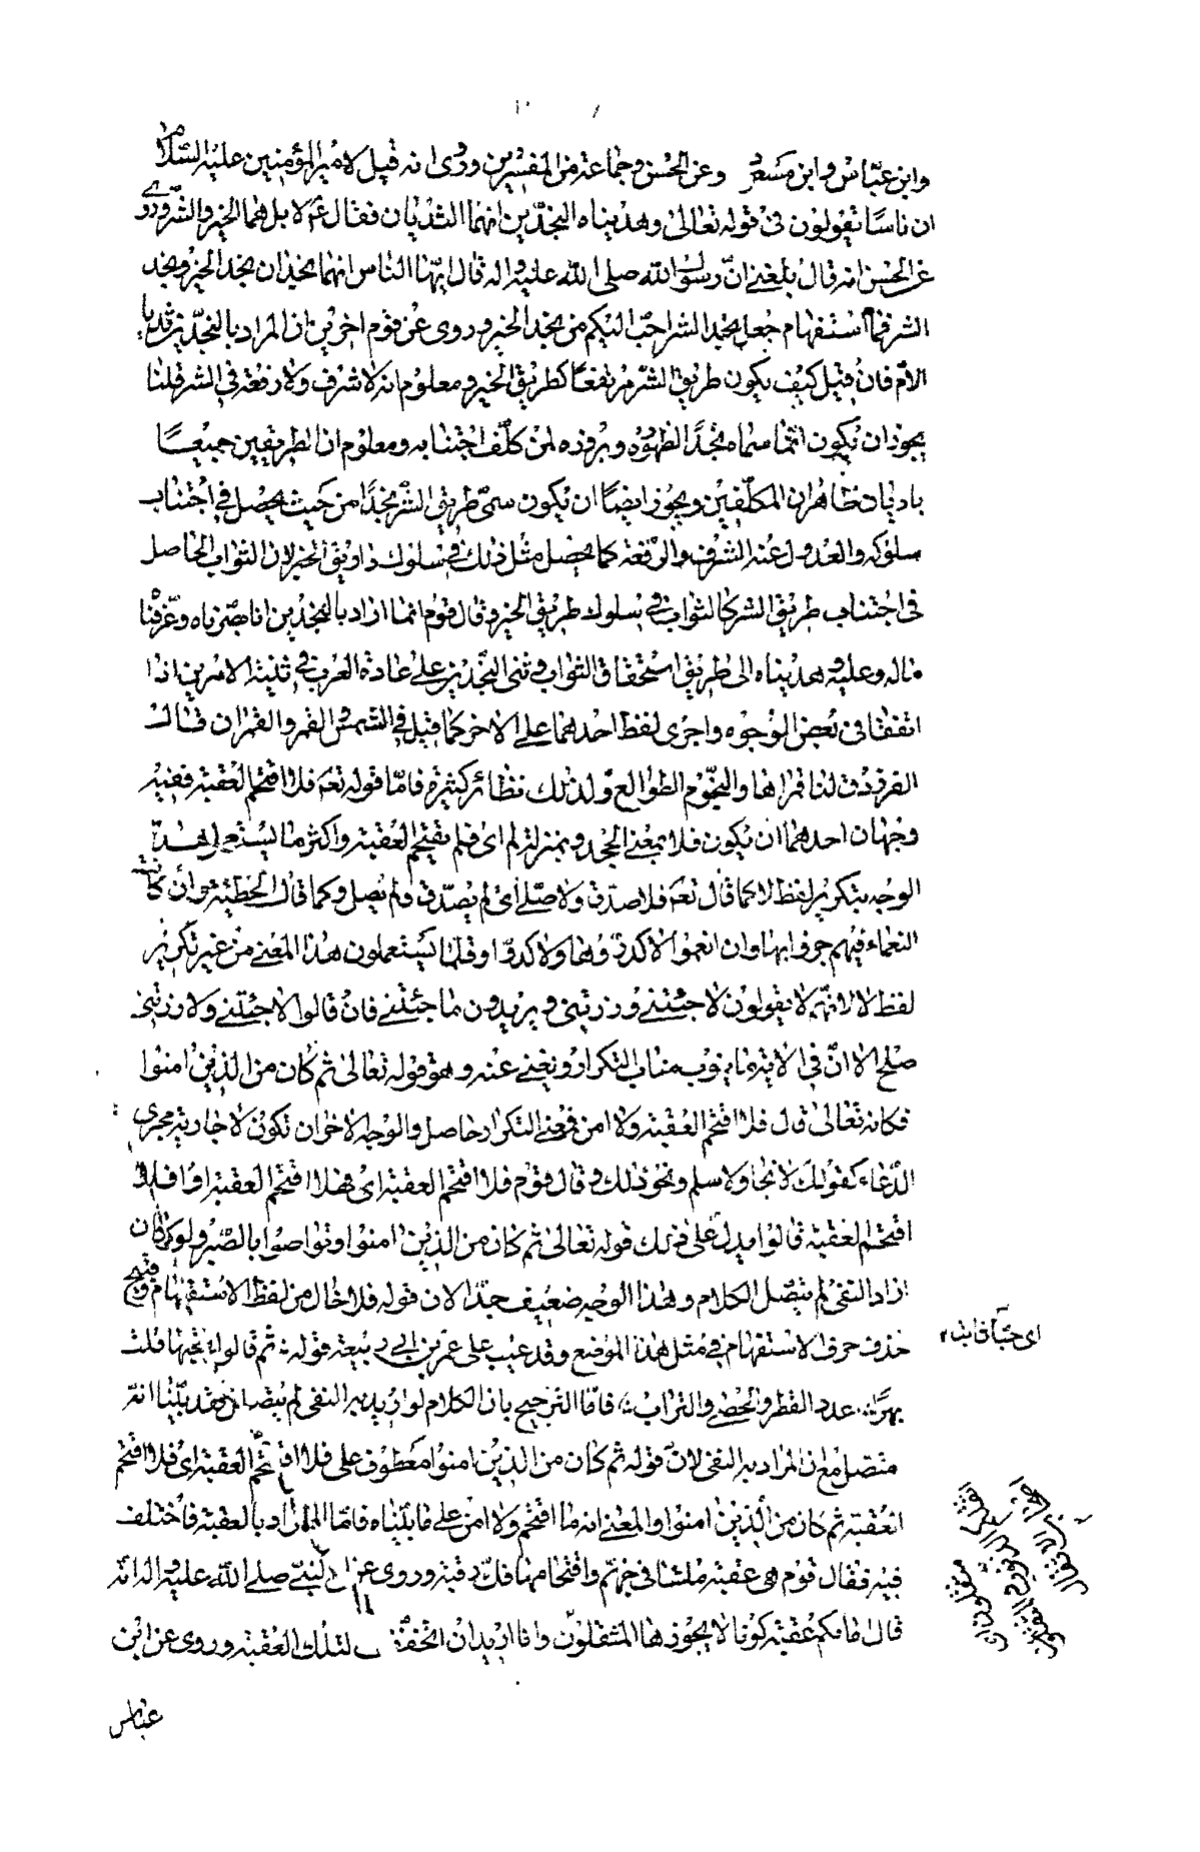 وابن عبّاس وابن مسعود وعن الحسن وجماعة من المفسّرين وروى انه قيل لامير المؤمنين عليه السّلام
ان ناسًا يقولون فى قوله تعالى وهديناه النجدين انهما الثديان فقال ع لا بل هما الخير والشر وروى
عن الحسن انه قال بلغنى انّ رسول الله صلى الله عليه واله قال ايّها الناس انهما نجدان نجد الخير ونجد
الشر فما جعل نجد الشر احبّ اليكم من نجد الخير وروى عن قوم اخرين ان المراد بالنجدين ثديا
الامّ فان قيل كيف يكون طريق الشّر مرتفعًا كطريق الخير ومعلوم انه لا شرف ولا رفعة فى الشر قلنا
يجوز ان يكون انّما سماه نجدًا لظهوره وبروزه لمن كلّف اجتنابه ومعلوم ان الطريقين جميعًا
باديان ظاهران للمكلّفين ويجوز ايضًا ان يكون سمّى طريق الشّر نجدًا من حيث يحصل فى اجتناب
سلوكه والعدول عنه الشرف والرّفعة كما يحصل مثل ذلك فى سلوك طريق الخير لان الثواب الحاصل
فى اجتناب طريق الشر كالثواب فى سلوك طريق الخير وقال قوم انما اراد بالنجدين انا بصّرناه وعرّفناه
ماله وعليه وهديناه الى طريق استحقاق الثواب وثنى النجّدين على عادة العرب فى تثنية الامرين اذا
اتفقا فى بعض الوجوه واجرى لفظ احدهما على الاخر كما قيل فى الشمس والقمر والقمران قال
الفرزدق لنا قمراها والنجوم الطوالع ولذلك نظائر كثيرة فامّا قوله تعم فلا اقتحم العقبة ففيه
وجهان احدهما ان يكون فلا بمعنى الجحد وبمنزلة لم اى فلم يقتحم العقبة واكثر ما يستعمل هذا
الوجه بتكرير لفظ لا كما قال تعم فلا صدّق ولا صلّى اى لم يصدّق ولم يصل وكما قال الحطيئة وان كانت
النعماء فيهم جزوا بها وان انعموا لا كدّروها ولا كدّوا وقلما يستعملون هذا المعنى من غير تكرير
لفظ لا لانّهم لا يقولون لا جئتنى وزرتنى ويريدون ما جئتنى فان قالوا لا جئتنى ولا زرتنى
صلح الا انّ فى الاية ما ينوب مناب التكرار ويغنى عنه وهو قوله تعالى ثم كان من الذين امنوا
فكانه تعالى قال فلا اقتحم العقبة ولا امن فمعنى التكرار حاصل والوجه الاخر ان تكون لا جارية مجرى
الدّعاء كقولك لا نجا ولا سلم ونحو ذلك وقال قوم فلا اقتحم العقبة اى فهلا اقتحم العقبة او افلا
اقتحم العقبة قالوا ويدلّ على ذلك قوله تعالى ثم كان من الذين امنوا وتواصوا بالصّبر ولو كان
اراد النفى لم يتصّل الكلام وهذا الوجه ضعيف جدّا لان قوله فلا خال من لفظ الاستفهام وقبيح
حذف حرف الاستفهام فى مثل هذا الموضع وقد عيب على عمر بن ابى ربيعة قوله ثم قالوا تحبّها قلت
بهرًا عدد القطر والحصى والتراب فامّا الترجيح بان الكلام لو اريد به النفى لم يتصل فقد بيّنّا انّه
متصل مع ان المراد به النفى لانّ قوله ثم كان من الذين امنوا معطوف على فلا اقتحم العقبة اى فلا اقتحم
العقبة ثم كان من الّذين امنوا والمعنى انه ما اقتحم ولا امن على ما بيّنّاه فامّا المراد بالعقبة فاختلف
فيه فقال قوم هى عقبة ملساء فى جهنّم واقتحامها فكّ رقبة وروى عن النّبى صلى الله عليه واله انه
قال امامكم عقبة كؤدا لا يجوزها المثقلون وانا اريد ان اتخفّف لتلك العقبة وروى عن ابن
عباس
اى حبّا قاب